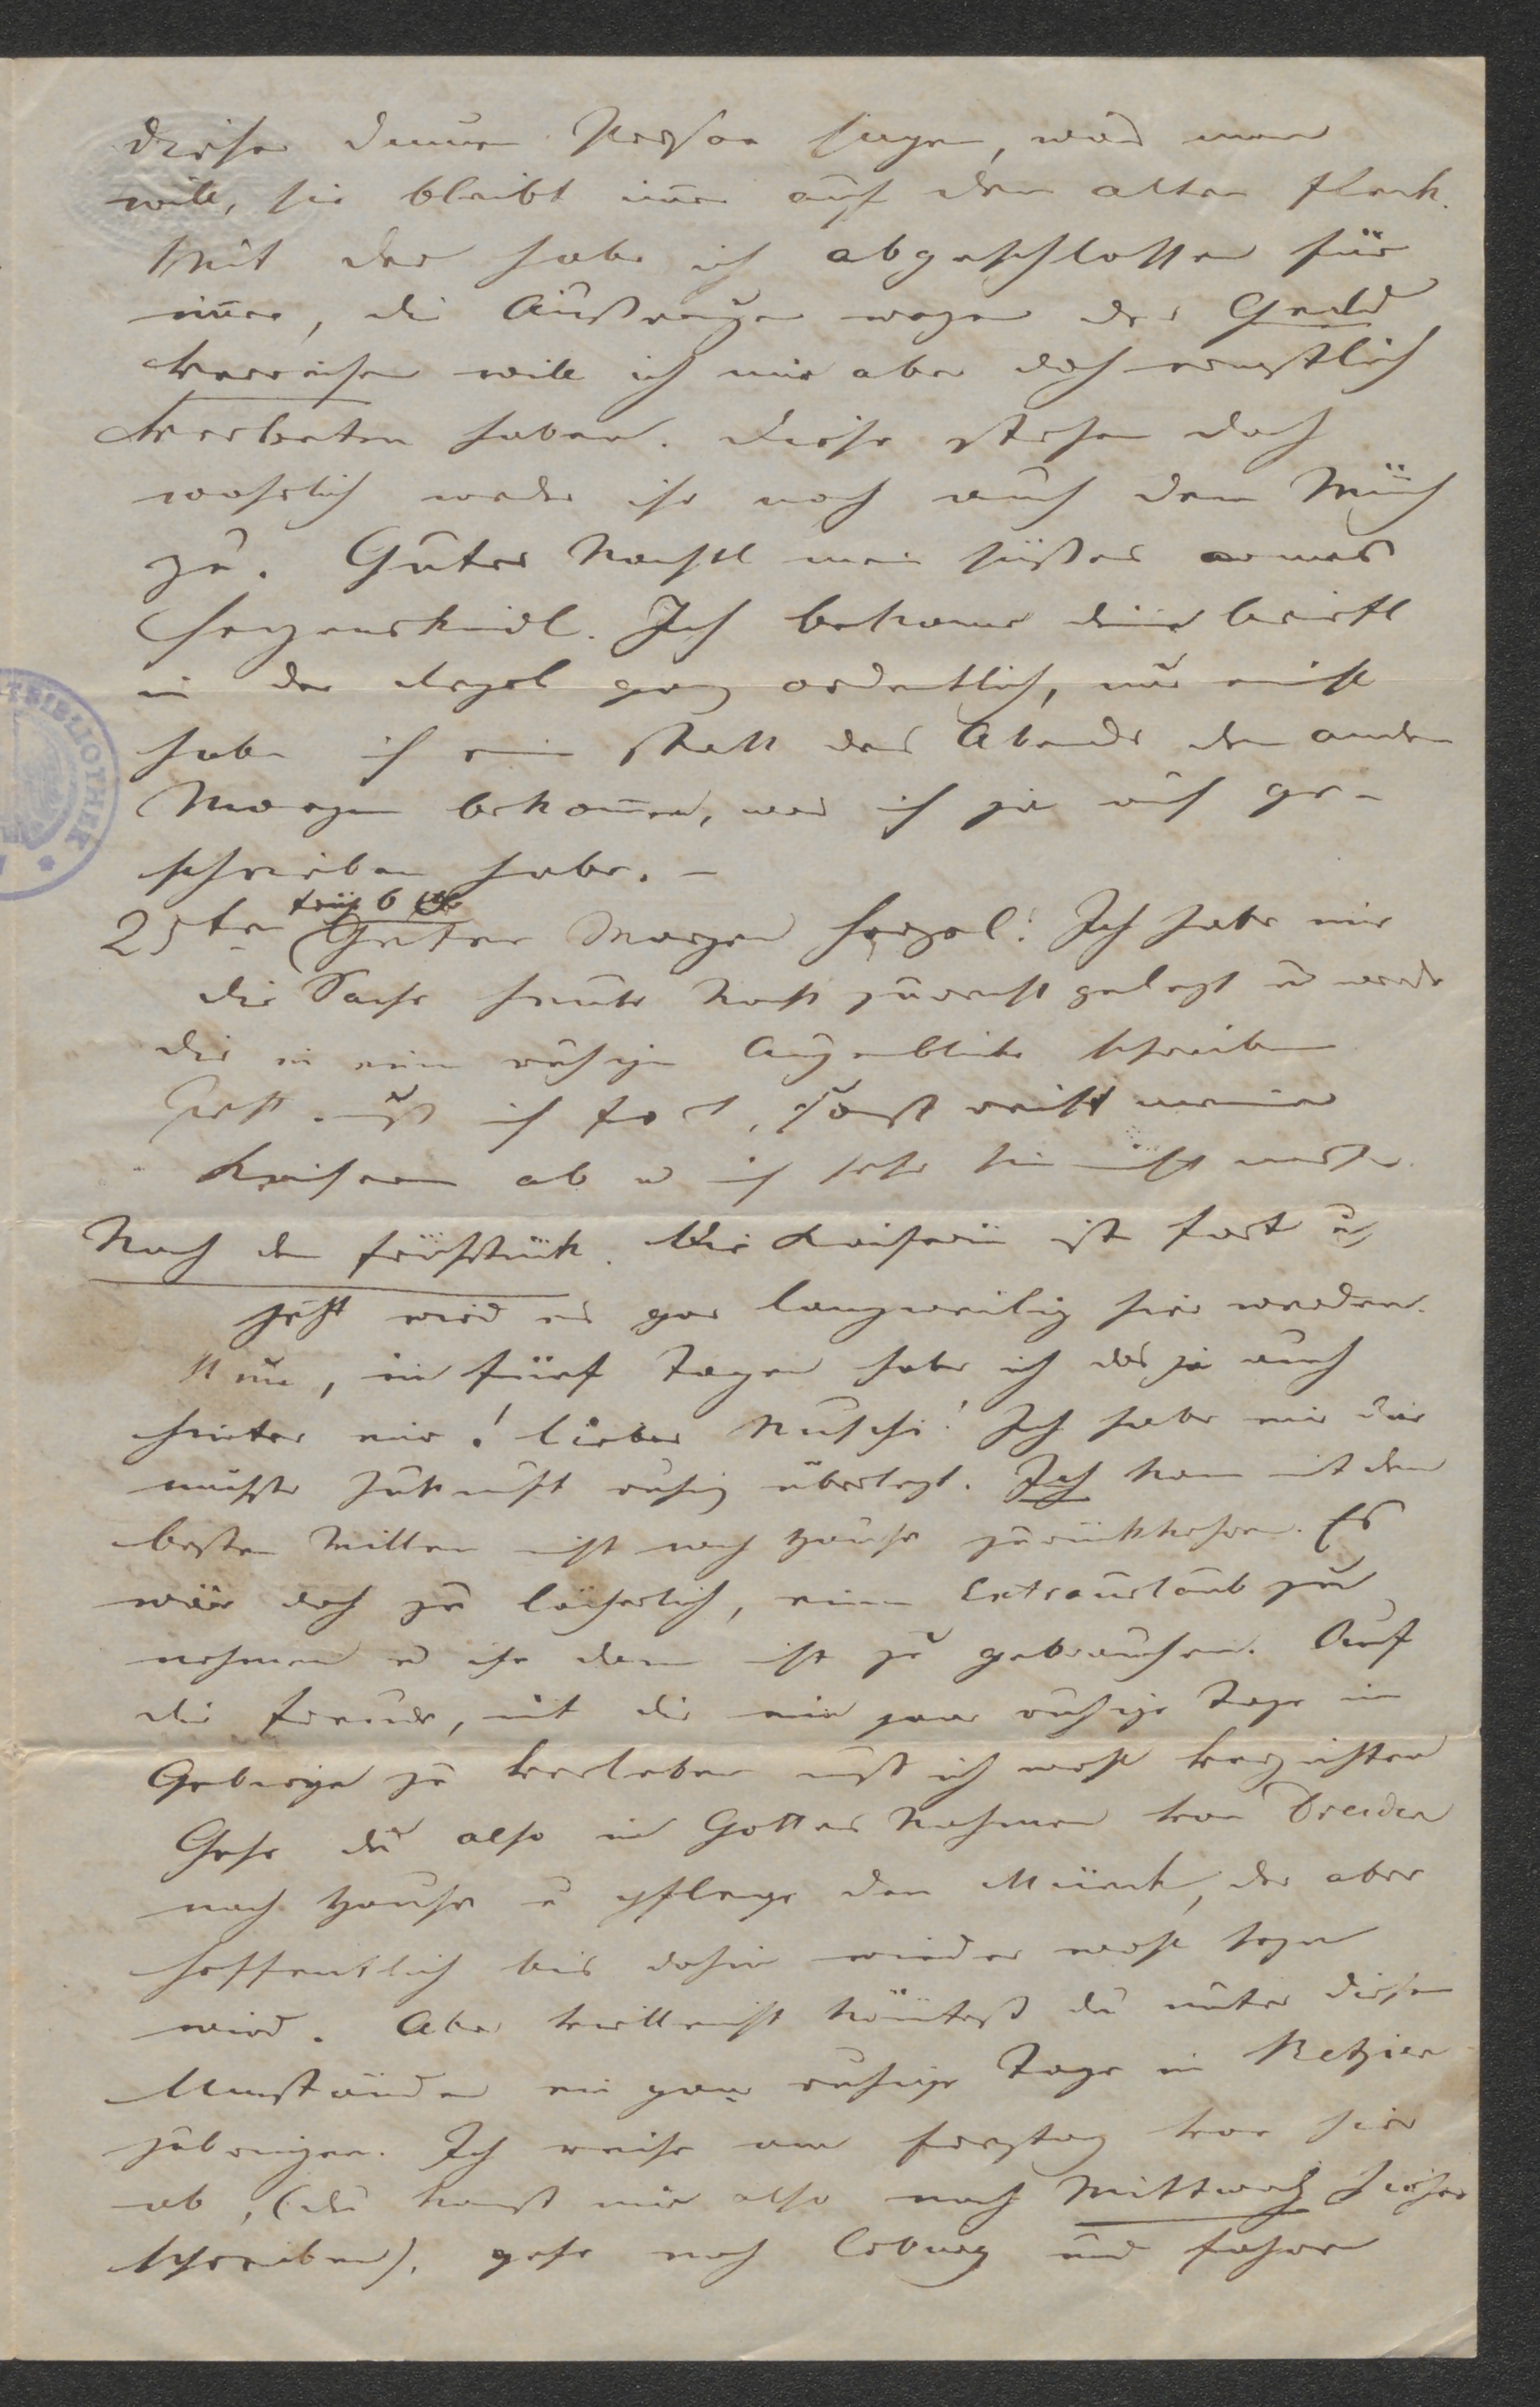 dieser dummen Person sagen, was man
will, sie bleibt im̄er auf dem alten Fleck.
Mit der habe ich abgeschlossen für
im̄er, die Äußerungen wegen der Geld
verbeten haben. Diese stehen doch
wahrlich weder ihr noch auch dem Münch
zu. Gutes Nachtl mein süßes armes
Herzenskindl. Ich bekomme deine Brieftl
in der Regel ganz ordentlich, nur einst
habe ich ein statt des Abends den andern
Morgen bekom̄en, was ich ja auch ge-
schrieben habe. –
früh 6 Uhr
25ten Guten Morgen Herzel! Ich habe mir
die Sache heute Nacht zurecht gelegt u werde
dir in einem ruhigen Augenblicke schreiben
Jetzt muß ich fort, sonst reist meine
Kaiserin ab u ich sehe sie nicht mehr.
Nach dem Frühstück. Die Kaiserin ist fort u
jetzt wird es gar langweilig hier werden.
Nun, in fünf Tagen habe ich das ja auch
hinter mir! Liebes Muschi! Ich habe mir die
nächste Zukunft ruhig überlegt. Ich kann mit dem
besten Willen nicht nach Hause zurückkehren. Es
wäre doch zu lächerlich, einen Extraurlaub zu
nehmen u ihn dann nicht zu gebrauchen. Auf
die Freude, mit dir ein paar ruhige Tage im
Gebirge zu verleben muß ich wohl verzichten
Gehe du also in Gottes Nahmen von Dresden
nach Hause u pflege den Münch, der aber
hoffentlich bis dahin wieder wohl seyn
wird. Aber vielleicht könntest du unter diesen
Umständen ein paar ruhige Tage in Retzien
zubringen. Ich reise am Freytag von hier
ab, (du kannst mir also noch Mittwoch hieher
schreiben), gehe nach Coburg und fahre